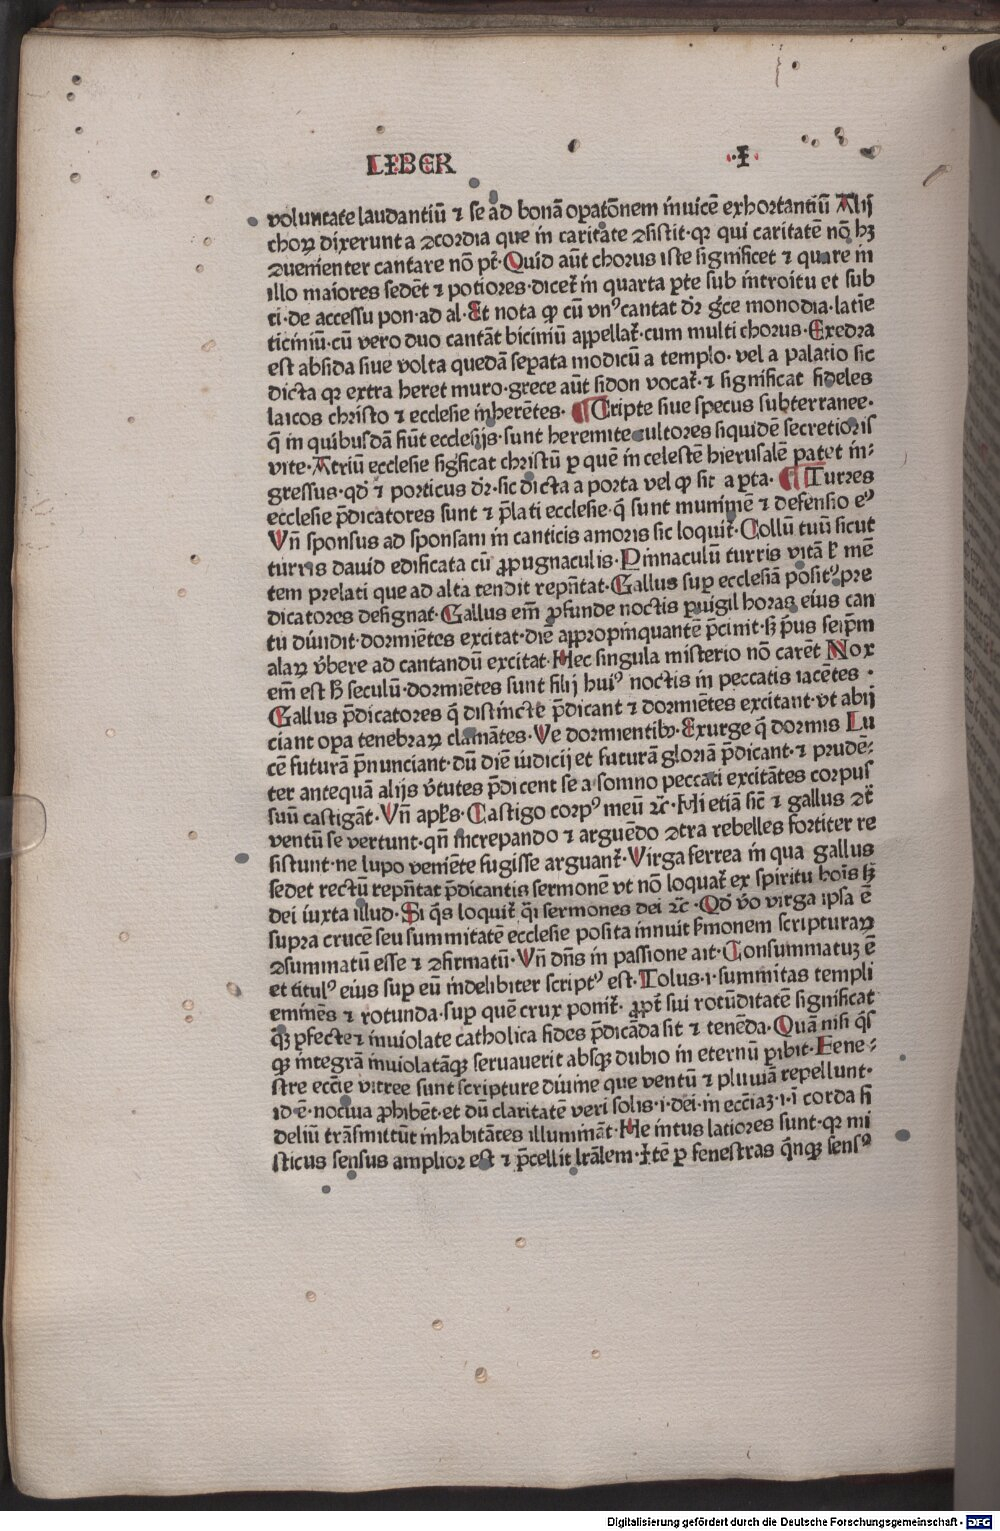 LIBER ·I·
voluntate laudantiū ⁊ se ad bonā opatōnem inuicē exhortantiū Alij
choꝝ dixerunt a ꝯcordia que in caritate ꝯsistit·qꝛ qui caritatē nō hꝫ
ꝯuenienter cantare nō pt̄·Quid aūt chorus iste significet ⁊ quare in
illo maiores sedēt ⁊ potiores·dicet̄ in quarta ꝑte sub introitu et sub
ti·de accessu pon·ad al·Et nota ꝙ cū vnꝰ cantat dr̄ grēce monodia·latīe
ticiniū·cū vero duo cantāt biciniū appellat̄·cum multi chorus·Exedra
est absida siue volta quedā seꝑata modicū a templo·vel a palatio sic
dicta qꝛ extra heret muro·grece aūt sidon vocat̄·⁊ significat fideles
laicos christo ⁊ ecclesie inherētes· ¶Cripte siue specus subterranee·
q̄ in quibusdā fiūt ecclesijs·sunt heremite cultores siquidē secretioris
vite·Atriū ecclesie sigficat christū ꝑ quē in celestē hierusalē patet in-
gressus·qd̄ ⁊ porticus dr̄·sic dicta a porta vel ꝙ sit aꝑta· ¶Turres
ecclesie p̄dicatores sunt ⁊ p̄lati ecclesie·q̄ sunt munimē ⁊ defensio eꝰ
Vn̄ sponsus ad sponsam in canticis amoris sic loquit̄·Collū tuū sicut
turris dauid edificata cū ꝓpugnaculis·Pinnaculū turris vitā ł mē
tem prelati que ad alta tendit repn̄tat·Gallus suꝑ ecclesiā positꝰ pre
dicatores designat·Gallus em̄ ꝓfunde noctis ꝑuigil horas eius can
tu diuidit·dormiētes excitat·diē appropinquantē p̄cinit·sꝫ p̄us seip̄m
alaꝝ v̄bere ad cantandū excitat·Hec singula misterio nō carēt Nox
em̄ est h̄ seculū·dormiētes sunt filij huiꝰ noctis in peccatis iacētes ·
Gallus p̄dicatores q̄ distincte p̄dicant ⁊ dormiētes excitant·vt abij
ciant oꝑa tenebraꝝ clamātes·Ve dormientibꝫ·Exurge q̄ dormis Lu
cē futurā p̄nunciant·dū diē iudicij et futurā gloriā p̄dicant·⁊ prudē-
ter antequā alijs v̄tutes p̄dicent se a somno peccati excitātes corpus
suū castigāt·Vn̄ apl̄s·Castigo corpꝰ meū ⁊c̄·Hi etiā sic̄ ⁊ gallus ꝯt̄
ventū se vertunt·qn̄ increpando ⁊ arguēdo ꝯtra rebelles fortiter re
sistunt·ne lupo veniēte fugisse arguant̄·Virga ferrea in qua gallus
sedet rectū repn̄tat p̄dicantis sermonē vt nō loquat̄ ex spiritu hoīs sꝫ
dei iuxta illud·Si q̄s loquit̄ q̄si sermones dei ⁊c̄·Qd̄ v̄o virga ipsa ē
supra crucē seu summitatē ecclesie posita innuit s̄monem scripturaꝝ
ꝯsummatū esse ⁊ ꝯfirmatū·Vn̄ dn̄s in passione ait·Consummatuꝫ ē
et titulꝰ eius suꝑ eū indelibiter scriptꝰ est·Tolus·i·summitas templi
eminēs ⁊ rotunda·suꝑ quē crux ponit̄·ꝓpt̄ sui rotūditatē significat
ꝙ̄ ꝑfecte ⁊ inuiolate catholica fides p̄dicāda sit ⁊ tenēda·Quā nisi q̄s
qꝫ integrā inuiolatāqꝫ seruauerit absqꝫ dubio in eternū ꝑibit·Fene-
stre ecc̄ie vitree sunt scripture diuine que ventū ⁊ pluuiā repellunt·
id ē·nociua ꝓhibēt·et dū claritatē veri solis·i·dei·in ecc̄iaꝫ·i·ī corda fi
deliū trāsmittūt inhabitātes illumināt·He intus latiores sunt·qꝛ mi
sticus sensus amplior est ⁊ p̄cellit lr̄alem·Itē ꝑ fenestras q̄nqꝫ sensꝰ
Digitalisierung gefördert durch die Deutsche Forschungsgemeinschaft - DFG